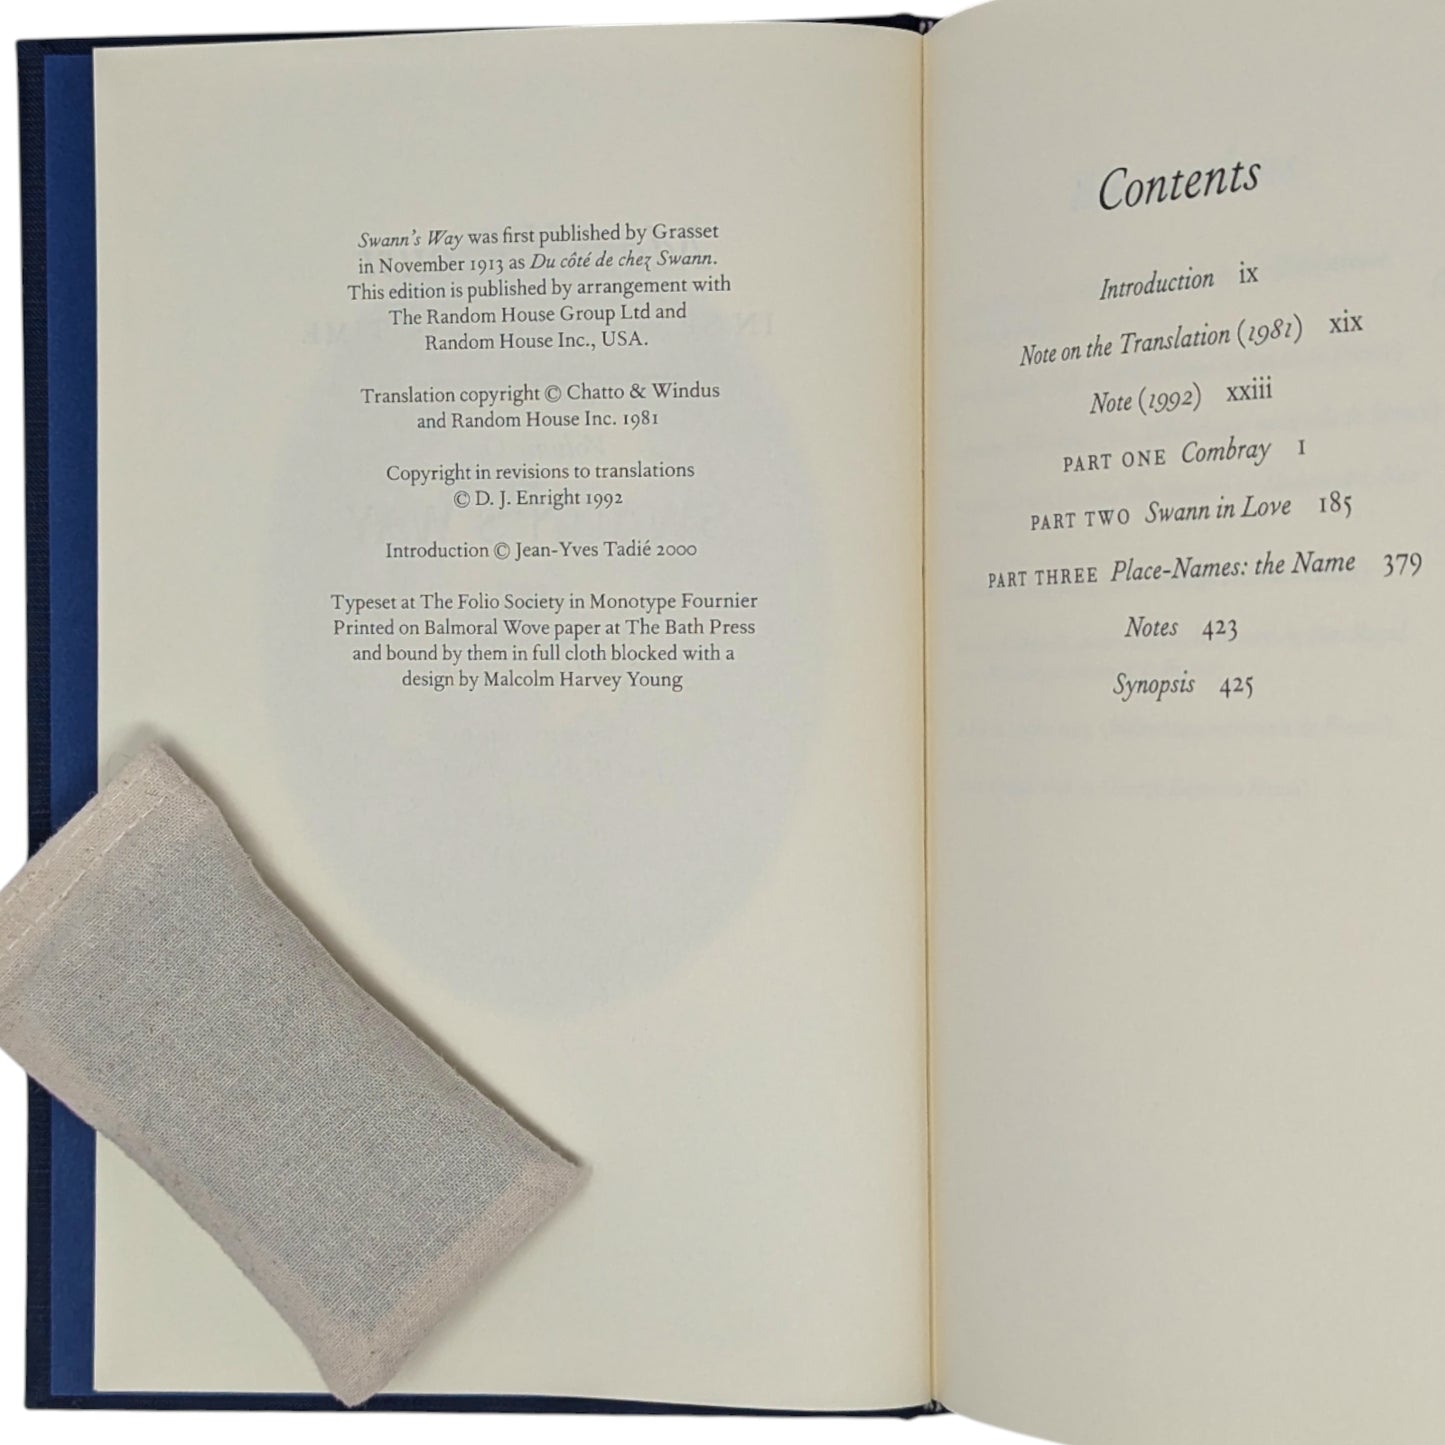 Swann's Way was first published by Grasset
in November 1913 as Du côté de chez Swann.
This edition is published by arrangement with
The Random House Group Ltd and
Random House Inc., USA.
Translation copyright © Chatto & Windus
and Random House Inc. 1981
Copyright in revisions to translations
© D. J. Enright 1992
Introduction © Jean-Yves Tadié 2000
Typeset at The Folio Society in Monotype Fournier
Printed on Balmoral Wove paper at The Bath Press
and bound by them in full cloth blocked with a
design by Malcolm Harvey Young
Contents
Introduction ix
Note on the Translation (1981) xix
Note (1992) xxiii
PART ONE Combray 1
PART TWO Swann in Love 185
PART THREE Place-Names: the Name 379
Notes 423
Synopsis 425